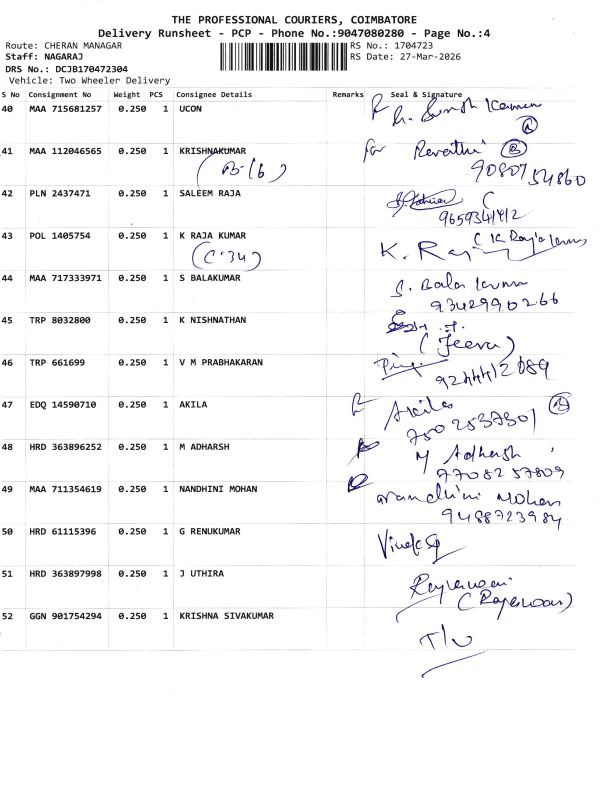 THE PROFESSIONAL COURIERS, COIMBATORE
Delivery Runsheet - PCP - Phone No.:9047080280 - Page No.:4
Route: CHERAN MANAGAR RS No.: 1704723
Staff: NAGARAJ RS Date: 27-Mar-2026
DRS No.: DCJB170472304
Vehicle: Two Wheeler Delivery
S No Consignment No Weight PCS Consignee Details Remarks Seal & Signature
40 MAA 715681257 0.250 1 UCON
41 MAA 112046565 0.250 1 KRISHNAKUMAR for Revathi
(B-16) 90807 54860
42 PLN 2437471 0.250 1 SALEEM RAJA
9659341412
43 POL 1405754 0.250 1 K RAJA KUMAR K. Raj
(C-34)
44 MAA 717333971 0.250 1 S BALAKUMAR S. Bala kumar
9342990266
45 TRP 8032800 0.250 1 K NISHNATHAN
(Jeeva)
46 TRP 661699 0.250 1 V M PRABHAKARAN
9244412089
47 EDQ 14590710 0.250 1 AKILA Akila
7502537301
48 HRD 363896252 0.250 1 M ADHARSH M Adharsh
7708257809
49 MAA 711354619 0.250 1 NANDHINI MOHAN Nandhini Mohan
9488723984
50 HRD 61115396 0.250 1 G RENUKUMAR
51 HRD 363897998 0.250 1 J UTHIRA
52 GGN 901754294 0.250 1 KRISHNA SIVAKUMAR